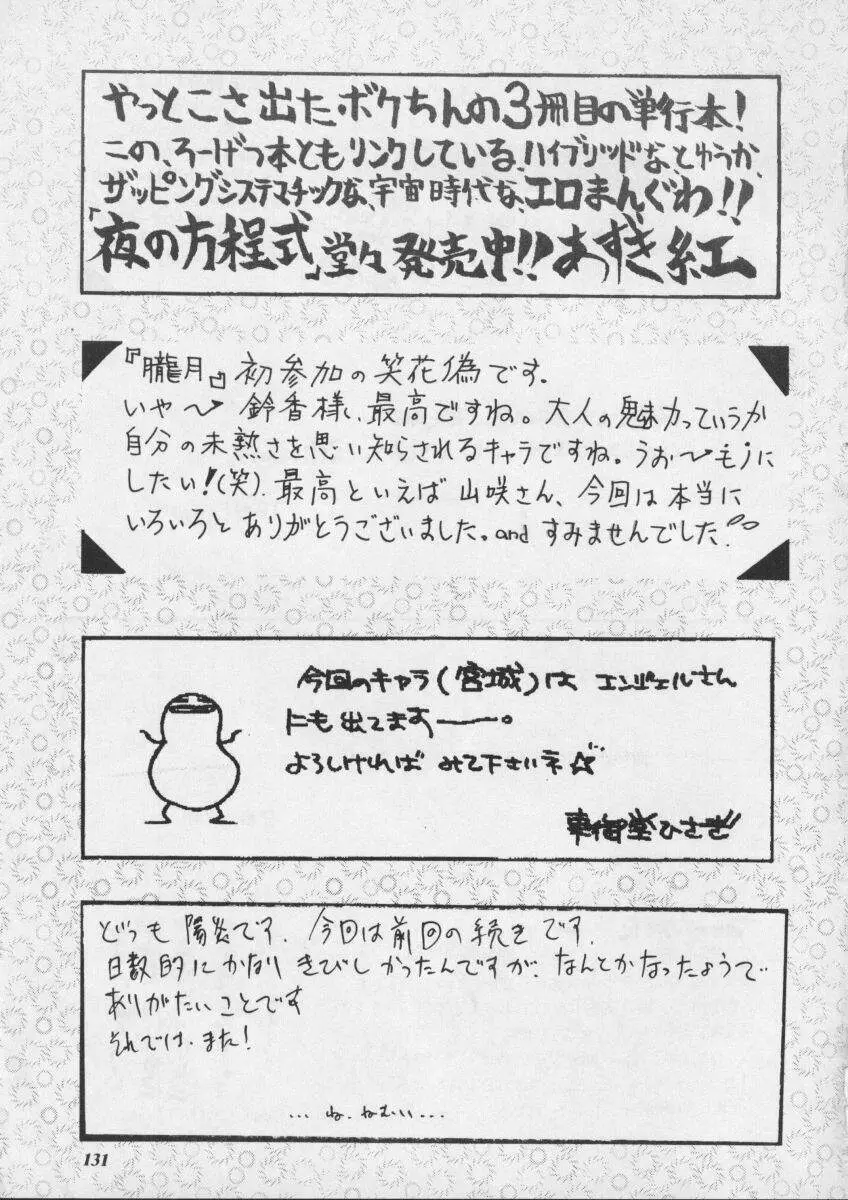 やっとこさ出たボクちんの3冊目の単行本!
この、ろーげつ本ともリンクしている、ハイブリッドな、とゆうか、
ザッピングシステマチックな、宇宙時代な、エロまんぐわ!!
「夜の方程式」堂々発売中!!あずき紅
『朧月』初参加の笑花偽です.
いや〜 鈴香様、最高ですね。大人の魅力っていうか
自分の未熟さを思い知らされるキャラですね。うお〜モノに
したい!(笑). 最高といえば山咲さん、今回は本当に
いろいろとありがとうございました。andすみませんでした!
今回のキャラ(宮城)は エンジェルさん
にも出てます——。
よろしければ みて下さいネ☆
東御堂ひさぎ
どうも 陽炎です. 今回は前回の続きです.
日数的にかなりきびしかったんですが、なんとかなったようで
ありがたいことです
それでは、また!
... ね、ねむい...
131